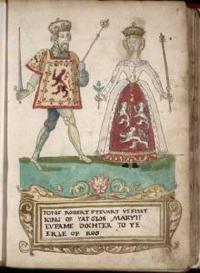 KING ROBERT STEVART YE FIRST
KING OF YAT NOS MARYIT
EUFAME DOCHTER TO YE
ERLE OF ROS